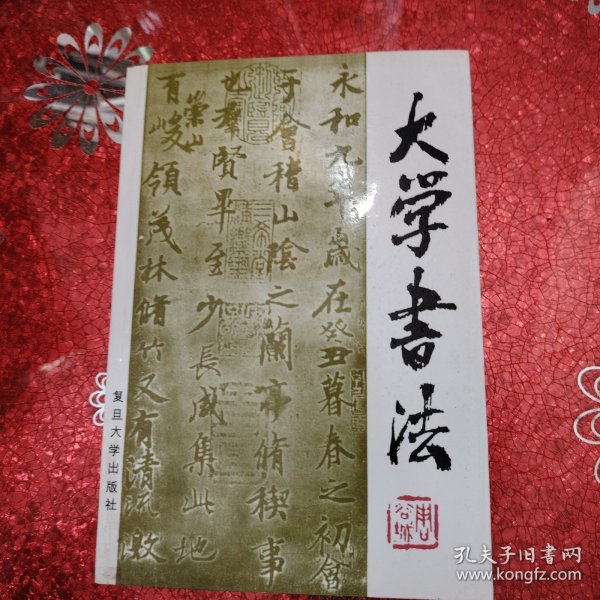 大学书法
周谷城
永和九年歲在癸丑暮春之初會
于會稽山陰之蘭亭脩禊事
也羣賢畢至少長咸集此地
有崇山峻領茂林脩竹又有清流激
复旦大学出版社
孔夫子旧书网
www.kongfz.com